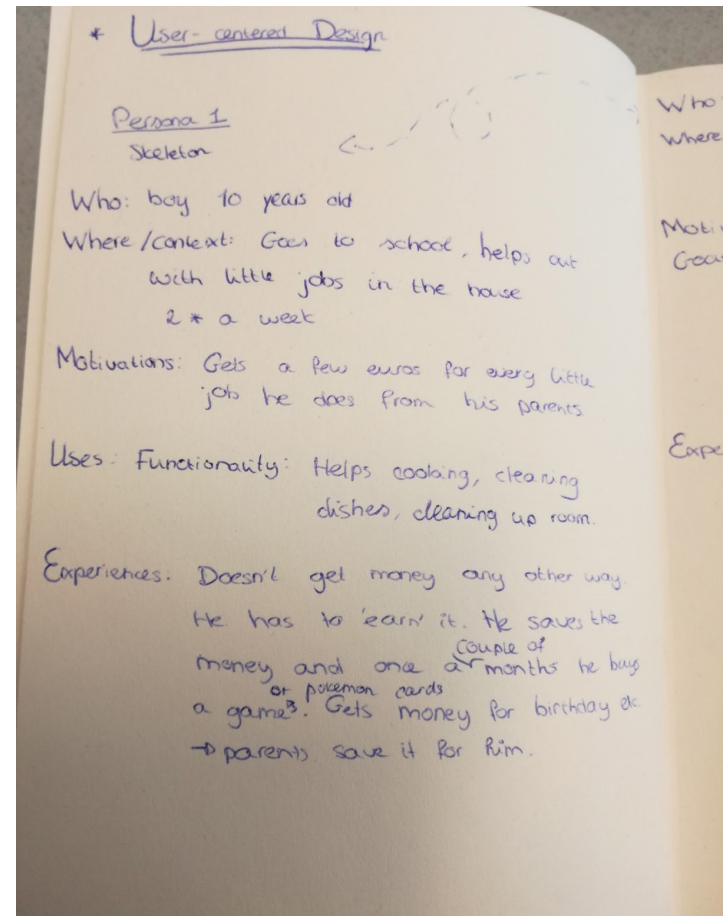 * User-centered Design
Persona 1
Skeleton
Who: boy 10 years old
Where/context: Goes to school, helps out
with little jobs in the house
2 * a week
Motivations: Gets a few euros for every little
job he does from his parents
Uses: Functionality: Helps cooking, cleaning
dishes, cleaning up room.
Experiences: Doesn't get money any other way.
He has to 'earn' it. He saves the
couple of
money and once a months he buys
or pokemon cards
a game. Gets money for birthday etc.
→ parents save it for him.
Who
Where
Moti
Goa
Expe